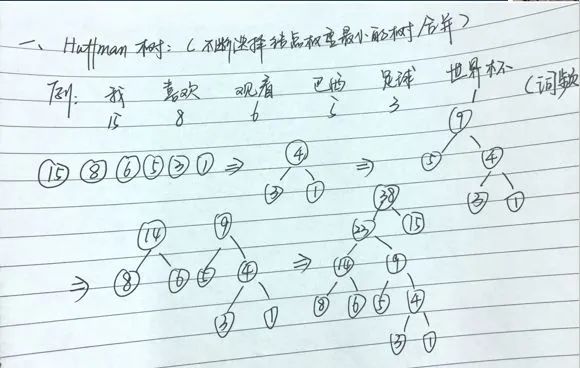 一、Huffman 树:(不断选择结点权重最小的树合并)
例: 我 喜欢 观看 巴西 足球 世界杯 (词频
15 8 6 5 3 1
15 8 6 5 3 1 ⇒ 4 3 1 ⇒ 9 5 4 3 1
⇒ 14 8 6 9 5 4 3 1 ⇒ 38 23 15 14 9 8 6 5 4 3 1